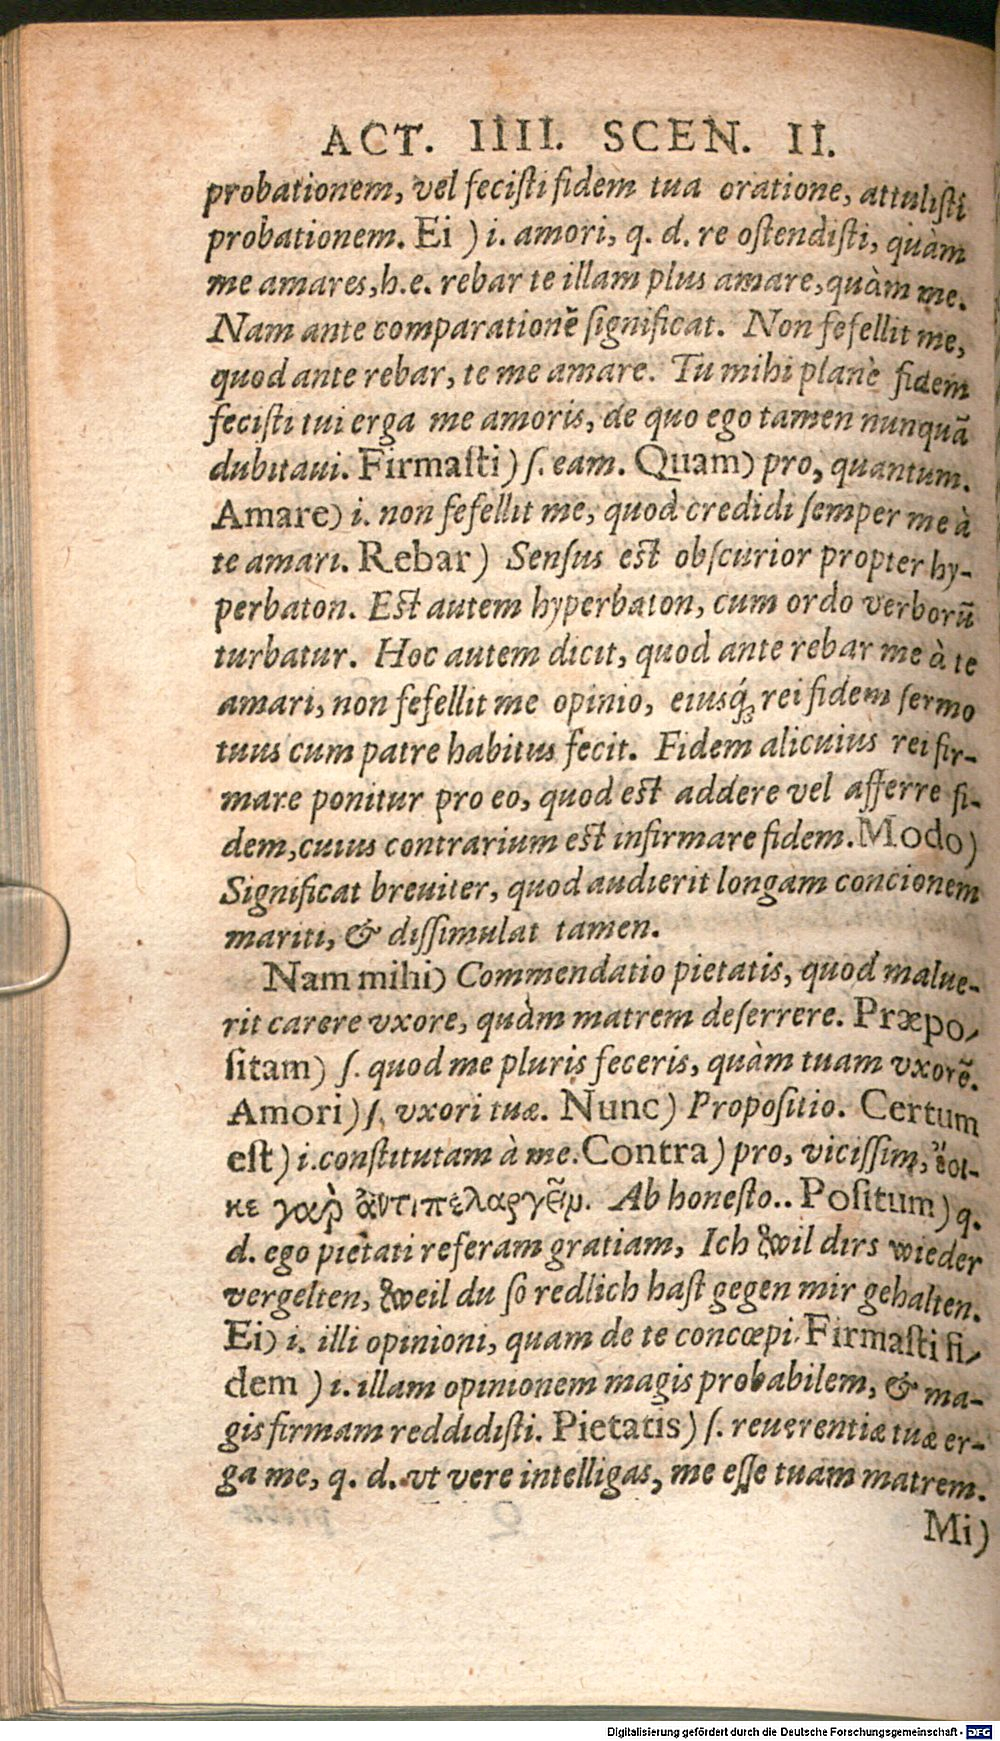 ACT. IIII. SCEN. II.
probationem, vel feciſti fidem tua oratione, attuliſti
probationem. Ei ) i. amori, q. d. re oſtendiſti, quàm
me amares, h.e. rebar te illam plus amare, quàm me.
Nam ante comparationẽ ſignificat. Non fefellit me,
quod ante rebar, te me amare. Tu mihi planè fidem
feciſti tui erga me amoris, de quo ego tamen nunquã
dubitaui. Firmaſti) ſ. eam. Quam) pro, quantum.
Amare) i. non fefellit me, quod credidi ſemper me à
te amari. Rebar) Senſus eſt obſcurior propter hy-
perbaton. Eſt autem hyperbaton, cum ordo verborũ
turbatur. Hoc autem dicit, quod ante rebar me à te
amari, non fefellit me opinio, eiusq́; rei fidem ſermo
tuus cum patre habitus fecit. Fidem alicuius rei fir-
mare ponitur pro eo, quod eſt addere vel afferre fi-
dem, cuius contrarium eſt infirmare fidem. Modo)
Significat breuiter, quod audierit longam concionem
mariti, & diſſimulat tamen.
Nam mihi) Commendatio pietatis, quod malue-
rit carere vxore, quàm matrem deſerrere. Præpo-
ſitam) ſ. quod me pluris feceris, quàm tuam vxorẽ.
Amori) ſ. vxori tuæ. Nunc) Propoſitio. Certum
eſt) i. conſtitutam à me. Contra) pro, viciſſim, ἔοι-
κε γαρ̀ ἀντιπελαργεῖν. Ab honeſto.. Poſitum) q.
d. ego pietati referam gratiam, Ich wil dirs wieder
vergelten, weil du ſo redlich haſt gegen mir gehalten.
Ei) i. illi opinioni, quam de te concœpi. Firmaſti fi-
dem ) i. illam opinionem magis probabilem, & ma-
gis firmam reddidiſti. Pietatis) ſ. reuerentiæ tuæ er-
ga me, q. d. vt vere intelligas, me eſſe tuam matrem.
Mi)
Digitalisierung gefördert durch die Deutsche Forschungsgemeinschaft - DFG